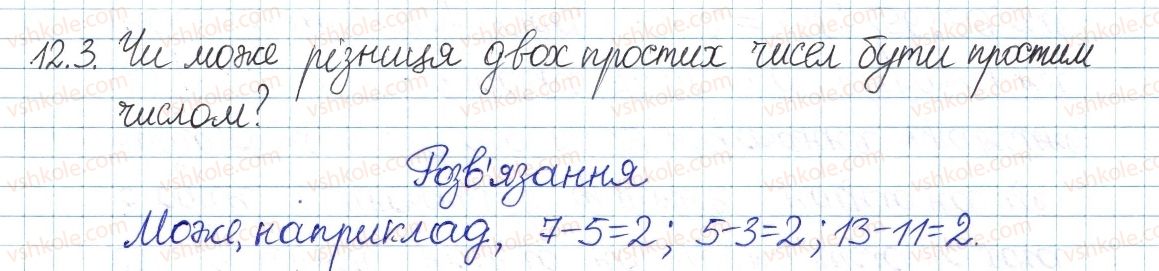 12.3. Чи може різниця двох простих чисел бути простим
числом?
Розв'язання
Може, наприклад, 7-5=2; 5-3=2; 13-11=2.